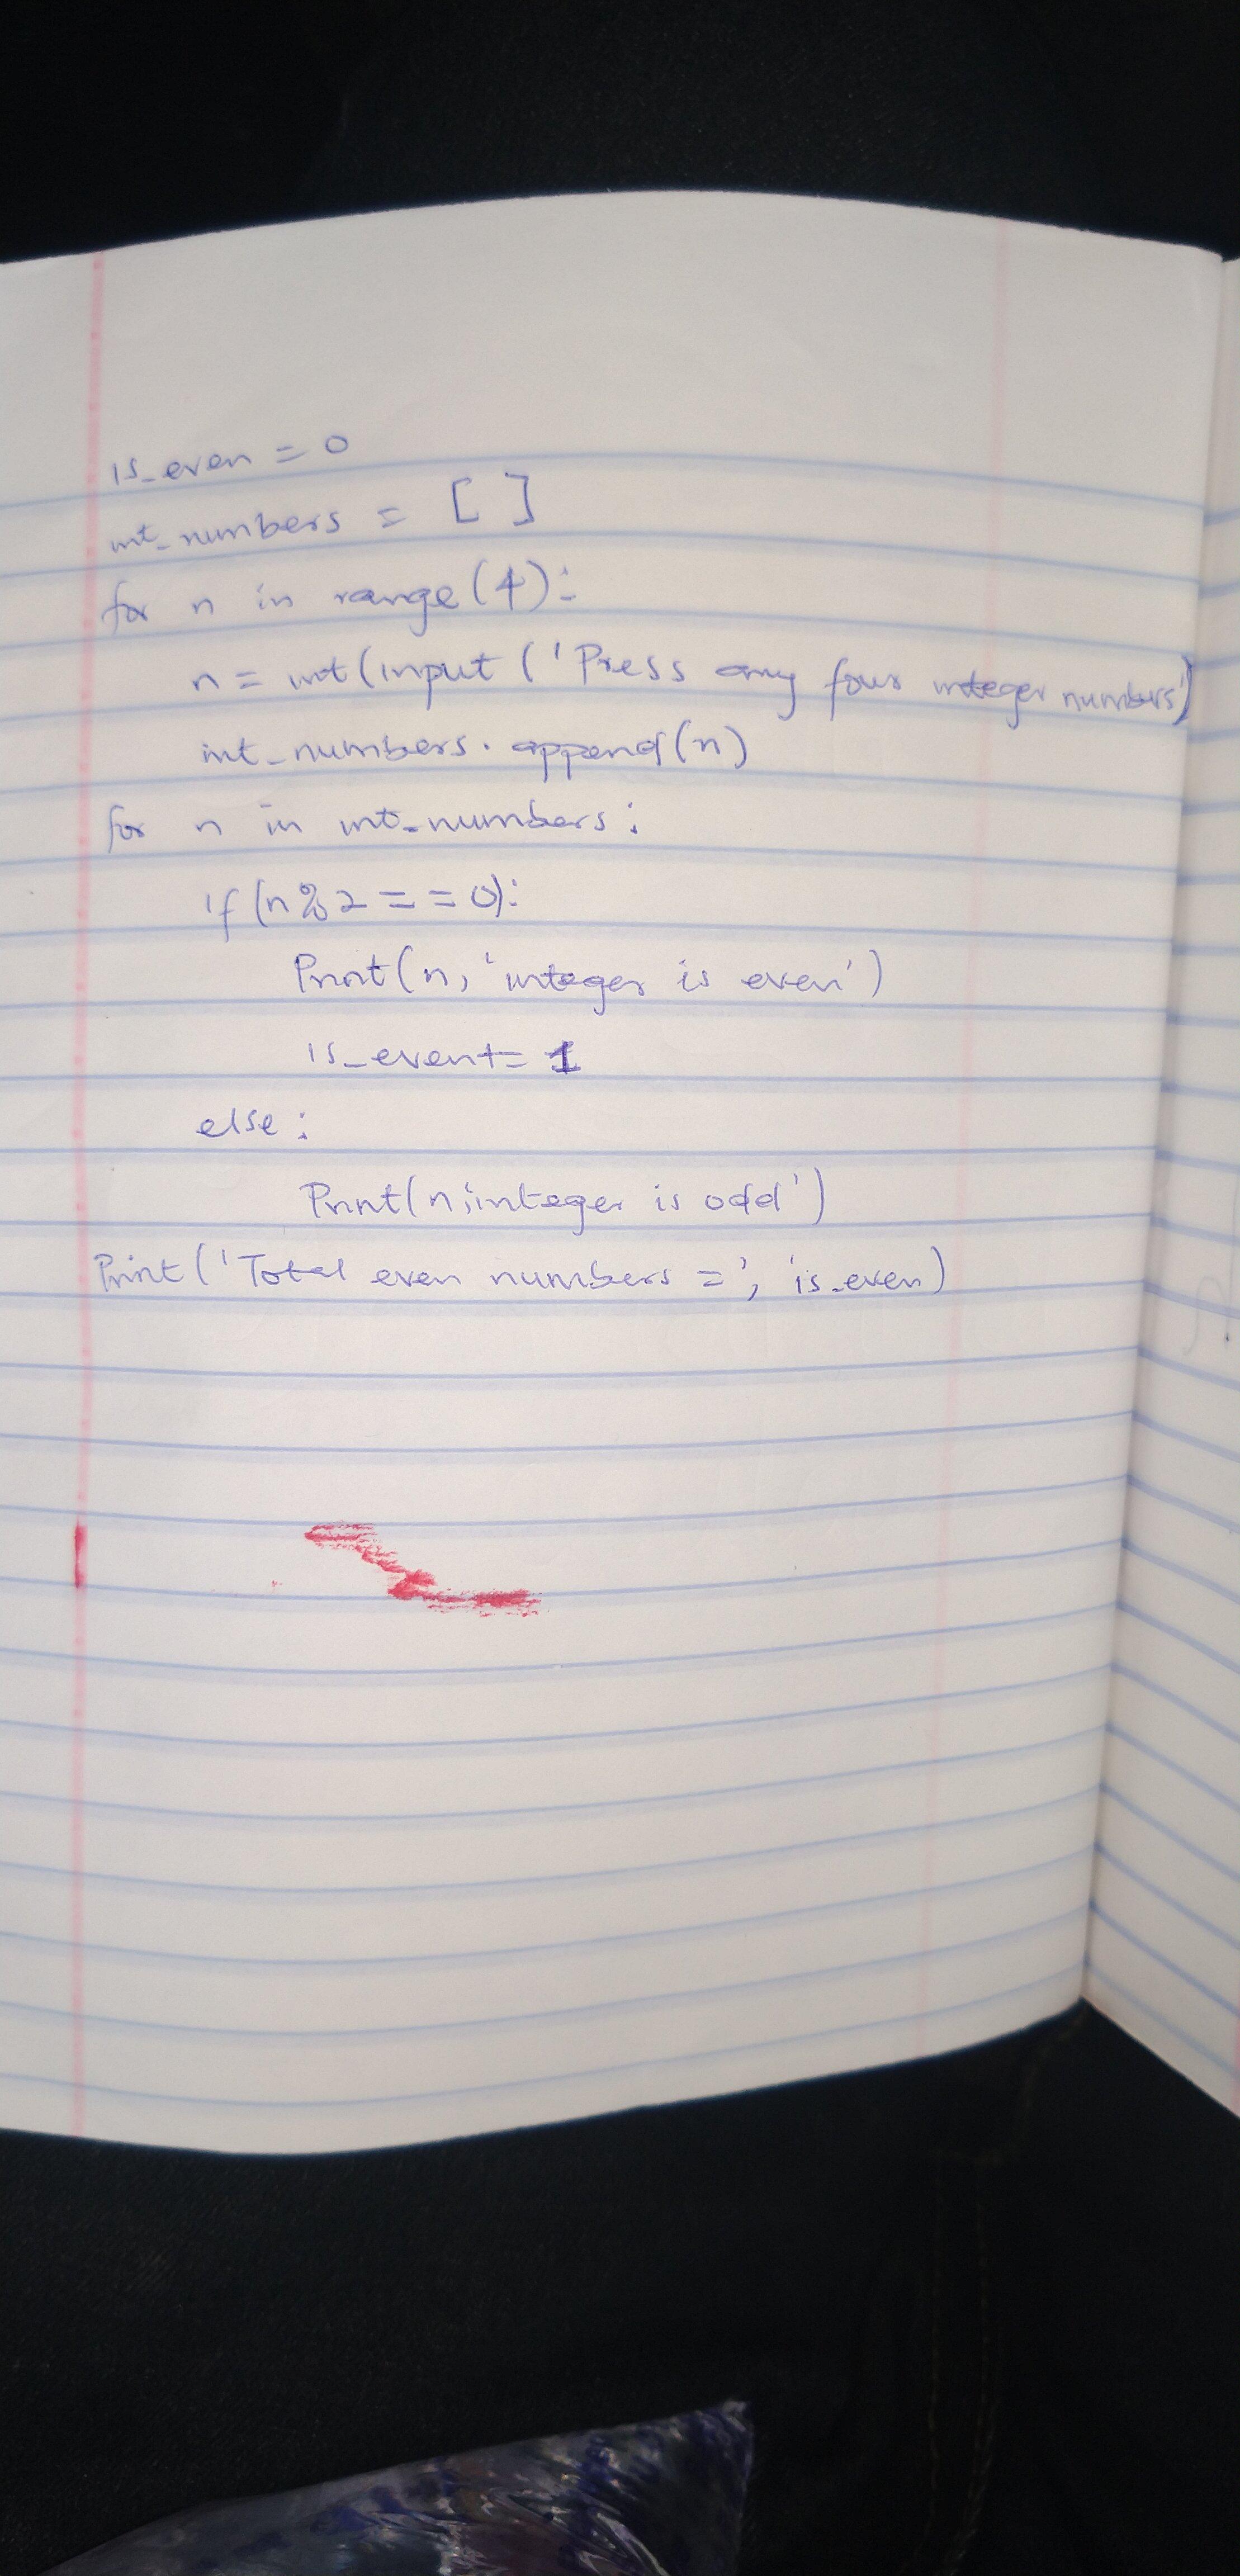 is_even = 0
int_numbers = [ ]
for n in range(4):
n = int(input('Press any four integer numbers')
int_numbers.append(n)
for n in int_numbers:
if (n%2 == 0):
Print(n, 'integer is even')
is_even+= 1
else:
Print(n,'integer is odd')
Print('Total even numbers =', is_even)